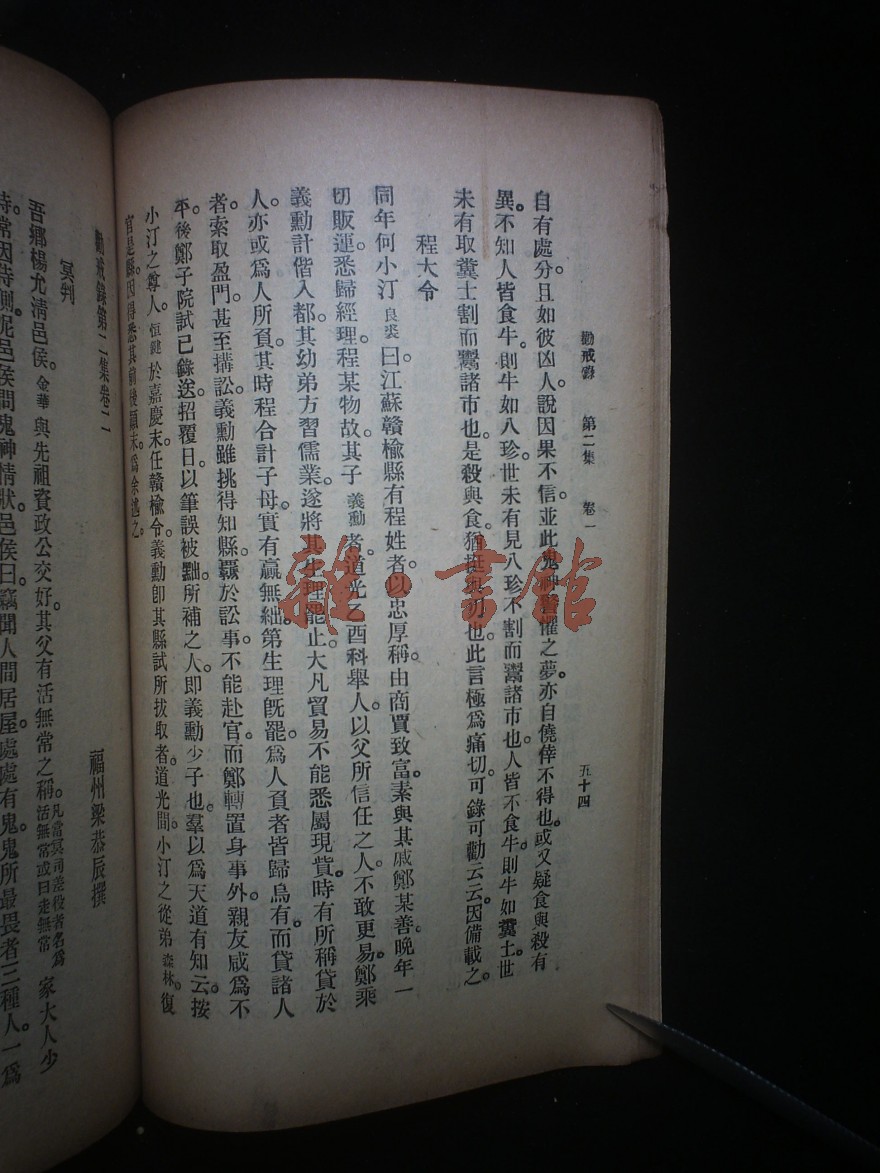 勸戒錄 第二集 卷一 五十四
自有處分。且如彼凶人說因果不信。並此鬼神警懼之夢。亦自僥倖不得也。或又疑食與殺有
異。不知人皆食牛。則牛如八珍。世未有見八珍不割而鬻諸市也。人皆不食牛。則牛如糞土。世
未有取糞土割而鬻諸市也。是殺與食。猶挺與刃也。此言極爲痛切。可錄可勸云云。因備載之。
程大令
同年何小汀良裘曰。江蘇贛榆縣有程姓者。以忠厚稱。由商賈致富。素與其戚鄭某善。晚年一
切販運。悉歸經理。程某物故。其子義勳者。道光乙酉科舉人。以父所信任之人。不敢更易。鄭乘
義勳計偕入都。其幼弟方習儒業。遂將其生理罷止。大凡貿易不能悉屬現貲。時有所稱貸於
人。亦或爲人所負。其時程合計子母。實有贏無絀。第生理旣罷。爲人負者皆歸烏有。而貸諸人
者索取盈門。甚至搆訟。義勳雖挑得知縣。羈於訟事。不能赴官。而鄭轉置身事外。親友咸爲不
平。後鄭子院試已錄送。招覆日以筆誤被黜。所補之人。卽義勳少子也。羣以爲天道有知云。按
小汀之尊人恒健於嘉慶末任贛榆令。義勳卽其縣試所拔取者。道光間。小汀之從弟森林。復
官是縣。因得悉其前後顚末。爲余述之。
勸戒錄第二集卷二
福州梁恭辰撰
冥判
吾鄉楊允清邑侯。金華與先祖資政公交好。其父有活無常之稱。凡當冥司差役者名爲活無常或曰走無常家大人少
時。常因侍側。昵邑侯問鬼神情狀。邑侯曰。竊聞人間居屋。處處有鬼。鬼所最畏者三種人。一爲
雜·書館